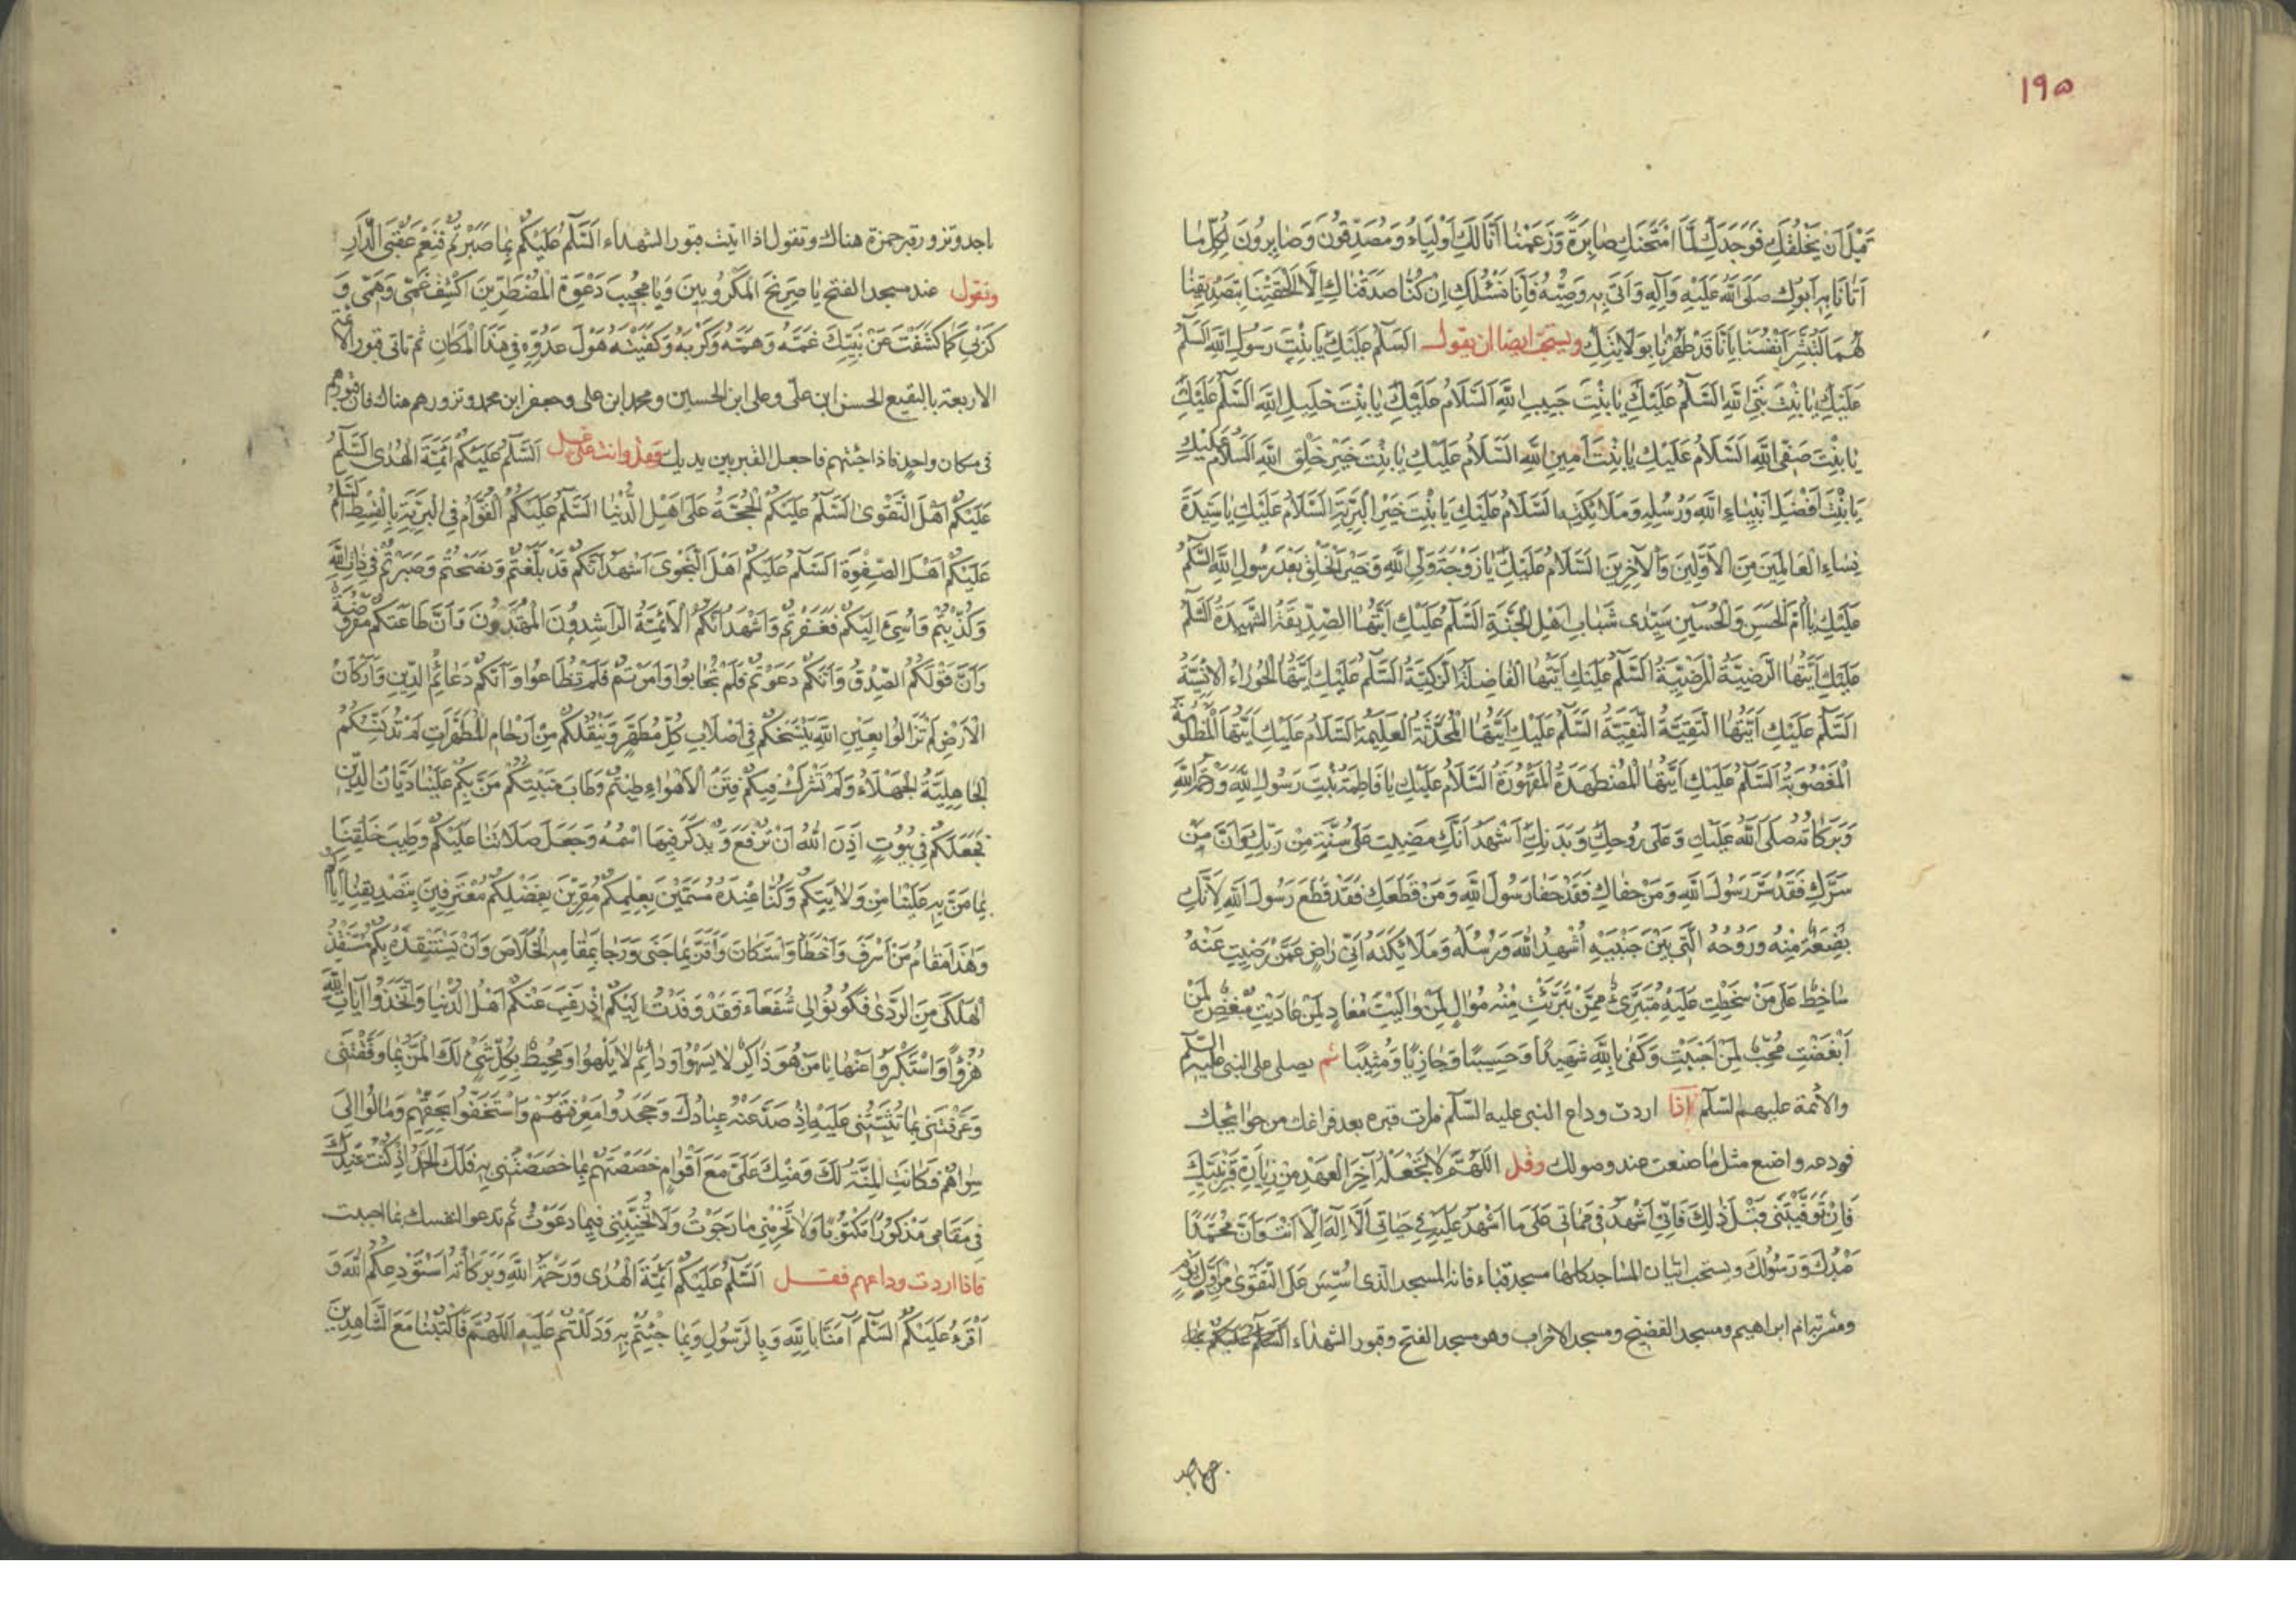 ١٩٥
قَبْلَ اَنْ يَخْلُقَكِ فَوَجَدَكِ لِمَا امْتَحَنَكِ صَابِرَةً وَزَعَمْنَا اَنَّا لَكِ اَوْلِيَاءُ وَمُصَدِّقُونَ وَصَابِرُونَ لِكُلِّ مَا
اَتَانَا بِهِ اَبُوكِ صَلَّى اللّٰهُ عَلَيْهِ وَآلِهِ وَاَتَى بِهِ وَصِيُّهُ فَاِنَّا نَسْئَلُكِ اِنْ كُنَّا صَدَّقْنَاكِ اِلَّا اَلْحَقْتِنَا بِتَصْدِيقِنَا
لَهُمَا لِنُبَشِّرَ اَنْفُسَنَا بِاَنَّا قَدْ طَهُرْنَا بِوَلَايَتِكِ ويستحب ايضا ان يقول السَّلَمُ عَلَيْكِ يَا بِنْتَ رَسُولِ اللّٰهِ السَّلَمُ
عَلَيْكِ يَا بِنْتَ نَبِيِّ اللّٰهِ السَّلَمُ عَلَيْكِ يَا بِنْتَ حَبِيبِ اللّٰهِ اَلسَّلَامُ عَلَيْكِ يَا بِنْتَ خَلِيلِ اللّٰهِ السَّلَمُ عَلَيْكِ
يَا بِنْتَ صَفِيِّ اللّٰهِ اَلسَّلَامُ عَلَيْكِ يَا بِنْتَ اَمِينِ اللّٰهِ السَّلَامُ عَلَيْكِ يَا بِنْتَ خَيْرِ خَلْقِ اللّٰهِ اَلسَّلَامُ عَلَيْكِ
يَا بِنْتَ اَفْضَلِ اَنْبِيَاءِ اللّٰهِ وَرُسُلِهِ وَمَلَائِكَتِهِ السَّلَامُ عَلَيْكِ يَا بِنْتَ خَيْرِ الْبَرِيَّةِ السَّلَامُ عَلَيْكِ يَا سَيِّدَةَ
نِسَاءِ الْعَالَمِينَ مِنَ الْاَوَّلِينَ وَالْآخِرِينَ السَّلَامُ عَلَيْكِ يَا زَوْجَةَ وَلِيِّ اللّٰهِ وَخَيْرِ الْخَلْقِ بَعْدَ رَسُولِ اللّٰهِ السَّلَمُ
عَلَيْكِ يَا اُمَّ الْحَسَنِ وَالْحُسَيْنِ سَيِّدَى شَبَابِ اَهْلِ الْجَنَّةِ السَّلَمُ عَلَيْكِ اَيَّتُهَا الصِّدِّيقَةُ الشَّهِيدَةُ السَّلَمُ
عَلَيْكِ اَيَّتُهَا الرَّضِيَّةُ الْمَرْضِيَّةُ السَّلَمُ عَلَيْكِ اَيَّتُهَا الْفَاضِلَةُ الزَّكِيَّةُ السَّلَمُ عَلَيْكِ اَيَّتُهَا الْحَوْرَاءُ الْاِنْسِيَّةُ
السَّلَمُ عَلَيْكِ اَيَّتُهَا التَّقِيَّةُ النَّقِيَّةُ السَّلَمُ عَلَيْكِ اَيَّتُهَا الْمُحَدَّثَةُ الْعَلِيمَةُ السَّلَامُ عَلَيْكِ اَيَّتُهَا الْمَظْلُومَةُ
الْمَغْصُوبَةُ السَّلَمُ عَلَيْكِ اَيَّتُهَا الْمُضْطَهَدَةُ الْمَقْهُورَةُ السَّلَامُ عَلَيْكِ يَا فَاطِمَةُ بِنْتَ رَسُولِ اللّٰهِ وَرَحْمَةُ اللّٰهِ
وَبَرَكَاتُهُ صَلَّى اللّٰهُ عَلَيْكِ وَعَلَى رُوحِكِ وَبَدَنِكِ اَشْهَدُ اَنَّكِ مَضَيْتِ عَلَى بَيِّنَةٍ مِنْ رَبِّكِ وَاَنَّ مَنْ
سَرَّكِ فَقَدْ سَرَّ رَسُولَ اللّٰهِ وَمَنْ جَفَاكِ فَقَدْ جَفَا رَسُولَ اللّٰهِ وَمَنْ قَطَعَكِ فَقَدْ قَطَعَ رَسُولَ اللّٰهِ لِاَنَّكِ
بَضْعَةٌ مِنْهُ وَرُوحُهُ الَّتِى بَيْنَ جَنْبَيْهِ اُشْهِدُ اللّٰهَ وَرُسُلَهُ وَمَلَائِكَتَهُ اَنِّى رَاضٍ عَمَّنْ رَضِيتِ عَنْهُ
سَاخِطٌ عَلَى مَنْ سَخَطْتِ عَلَيْهِ مُتَبَرِّئٌ مِمَّنْ تَبَرَّئْتِ مِنْهُ مُوَالٍ لِمَنْ وَالَيْتِ مُعَادٍ لِمَنْ عَادَيْتِ مُبْغِضٌ لِمَنْ
اَبْغَضْتِ مُحِبٌّ لِمَنْ اَحْبَبْتِ وَكَفَى بِاللّٰهِ شَهِيدًا وَحَسِيبًا وَجَازِيًا وَمُثِيبًا ثم يصلى على النبى عليه السلم
والائمة عليهم السلم اذا اردت وداع النبى عليه السلم فرات قبره بعد فراغك من حوائجك
فودعه واصنع مثل ما صنعت عند وصولك وقل اللّٰهُمَّ لَا تَجْعَلْهُ آخِرَ الْعَهْدِ مِنْ زِيَارَةِ قَبْرِ نَبِيِّكَ
فَاِنْ تَوَفَّيْتَنِى قَبْلَ ذٰلِكَ فَاِنِّى اَشْهَدُ فِى مَمَاتِى عَلَى مَا اَشْهَدُ عَلَيْهِ فِى حَيَاتِى اَلَّا اِلٰهَ اِلَّا اَنْتَ وَاَنَّ مُحَمَّدًا
عَبْدُكَ وَرَسُولُكَ ويستحب اتيان المساجد كلها مسجد قباء فانه المسجد الذى اُسِّسَ عَلَى التَّقْوَى مِنْ اَوَّلِ يَوْمٍ
ومشربة ام ابراهيم ومسجد الفضيخ ومسجد الاحزاب وهو مسجد الفتح وقبور الشهداء السلم عليكم بما
باحد وتزور قبر حمزة هناك وتقول اذا اتيت قبور الشهداء اَلسَّلَمُ عَلَيْكُمْ بِمَا صَبَرْتُمْ فَنِعْمَ عُقْبَى الدَّارِ
وتقول عند مسجد الفتح يَا صَرِيخَ الْمَكْرُوبِينَ وَيَا مُجِيبَ دَعْوَةِ الْمُضْطَرِّينَ اكْشِفْ غَمِّى وَهَمِّى وَ
كَرْبِى كَمَا كَشَفْتَ عَنْ نَبِيِّكَ غَمَّهُ وَهَمَّهُ وَكَرْبَهُ وَكَفَيْتَهُ هَوْلَ عَدُوِّهِ فِى هٰذَا الْمَكَانِ ثم تاتى قبور الائمة
الاربعة بالبقيع الحسن ابن على وعلى ابن الحسين ومحمد ابن على وجعفر ابن محمد وتزورهم هناك فان قبورهم
فى مكان واحد فاذا جئتهم فاجعل القبر بين يديك وقل وانت على غسل اَلسَّلَمُ عَلَيْكُمْ اَئِمَّةَ الْهُدَى السَّلَمُ
عَلَيْكُمْ اَهْلَ التَّقْوَى السَّلَمُ عَلَيْكُمُ الْحُجَّةُ عَلَى اَهْلِ الدُّنْيَا السَّلَمُ عَلَيْكُمُ الْقُوَّامُ فِى الْبَرِيَّةِ بِالْقِسْطِ السَّلَمُ
عَلَيْكُمْ اَهْلَ الصَّفْوَةِ السَّلَمُ عَلَيْكُمْ اَهْلَ النَّجْوَى اَشْهَدُ اَنَّكُمْ قَدْ بَلَّغْتُمْ وَنَصَحْتُمْ وَصَبَرْتُمْ فِى ذَاتِ اللّٰهِ
وَكُذِّبْتُمْ وَاُسِئَ اِلَيْكُمْ فَغَفَرْتُمْ وَاَشْهَدُ اَنَّكُمُ الْاَئِمَّةُ الرَّاشِدُونَ الْمُهْتَدُونَ وَاَنَّ طَاعَتَكُمْ مَفْرُوضَةٌ
وَاَنَّ قَوْلَكُمُ الصِّدْقُ وَاَنَّكُمْ دَعَوْتُمْ فَلَمْ تُجَابُوا وَاَمَرْتُمْ فَلَمْ تُطَاعُوا وَاَنَّكُمْ دَعَائِمُ الدِّينِ وَاَرْكَانُ
الْاَرْضِ لَمْ تَزَالُوا بِعَيْنِ اللّٰهِ يَنْسَخُكُمْ فِى اَصْلَابِ كُلِّ مُطَهَّرٍ وَيَنْقُلُكُمْ مِنْ اَرْحَامِ الْمُطَهَّرَاتِ لَمْ تُدَنِّسْكُمُ
الْجَاهِلِيَّةُ الْجَهْلَاءُ وَلَمْ تَشْرَكْ فِيكُمْ فِتَنُ الْاَهْوَاءِ طِبْتُمْ وَطَابَ مَنْبَتُكُمْ مَنَّ بِكُمْ عَلَيْنَا دَيَّانُ الدِّينِ
فَجَعَلَكُمْ فِى بُيُوتٍ اَذِنَ اللّٰهُ اَنْ تُرْفَعَ وَيُذْكَرَ فِيهَا اسْمُهُ وَجَعَلَ صَلَاتَنَا عَلَيْكُمْ وَطِيبَ خَلْقِنَا
بِمَا مَنَّ بِهِ عَلَيْنَا مِنْ وَلَايَتِكُمْ وَكُنَّا عِنْدَهُ مُسَمَّيْنَ بِعِلْمِكُمْ مُقِرِّينَ بِفَضْلِكُمْ مُعْتَرِفِينَ بِتَصْدِيقِنَا اِيَّاكُمْ
وَهٰذَا مَقَامُ مَنْ اَسْرَفَ وَاَخْطَأَ وَاسْتَكَانَ وَاَقَرَّ بِمَا جَنَى وَرَجَا بِمَقَامِهِ الْخَلَاصَ وَاَنْ يَسْتَنْقِذَهُ بِكُمْ مُسْتَنْقِذُ
الْهَلْكَى مِنَ الرَّدَى فَكُونُوا لِى شُفَعَاءَ فَقَدْ وَفَدْتُ اِلَيْكُمْ اِذْ رَغِبَ عَنْكُمْ اَهْلُ الدُّنْيَا وَاتَّخَذُوا آيَاتِ اللّٰهِ
هُزُوًا وَاسْتَكْبَرُوا عَنْهَا يَا مَنْ هُوَ ذَاكِرٌ لَا يَسْهُوا وَدَائِمٌ لَا يَلْهُوا وَمُحِيطٌ بِكُلِّ شَيْءٍ لَكَ الْمَنُّ بِمَا وَفَّقْتَنِى
وَعَرَّفْتَنِى بِمَا ثَبَّتَّنِى عَلَيْهِ اِذْ صَدَّ عَنْهُ عِبَادُكَ وَجَحَدُوا مَعْرِفَتَهُمْ وَاسْتَخَفُّوا بِحَقِّهِمْ وَمَالُوا اِلَى
سِوَاهُمْ فَكَانَتِ الْمِنَّةُ لَكَ وَمِنْكَ عَلَىَّ مَعَ اَقْوَامٍ خَصَصْتَهُمْ بِمَا خَصَصْتَنِى بِهِ فَلَكَ الْحَمْدُ اِذْ كُنْتُ عِنْدَكَ
فِى مَقَامِى مَذْكُورًا مَكْتُوبًا وَلَا تَحْرِمْنِى مَا رَجَوْتُ وَلَا تُخَيِّبْنِى فِيمَا دَعَوْتُ ثم تدعو لنفسك بما احببت
فاذا اردت وداعهم فقل اَلسَّلَمُ عَلَيْكُمْ اَئِمَّةَ الْهُدَى وَرَحْمَةُ اللّٰهِ وَبَرَكَاتُهُ اَسْتَوْدِعُكُمُ اللّٰهَ وَ
اَقْرَءُ عَلَيْكُمُ السَّلَمَ آمَنَّا بِاللّٰهِ وَبِالرَّسُولِ وَبِمَا جِئْتُمْ بِهِ وَدَلَلْتُمْ عَلَيْهِ اَللّٰهُمَّ فَاكْتُبْنَا مَعَ الشَّاهِدِينَ